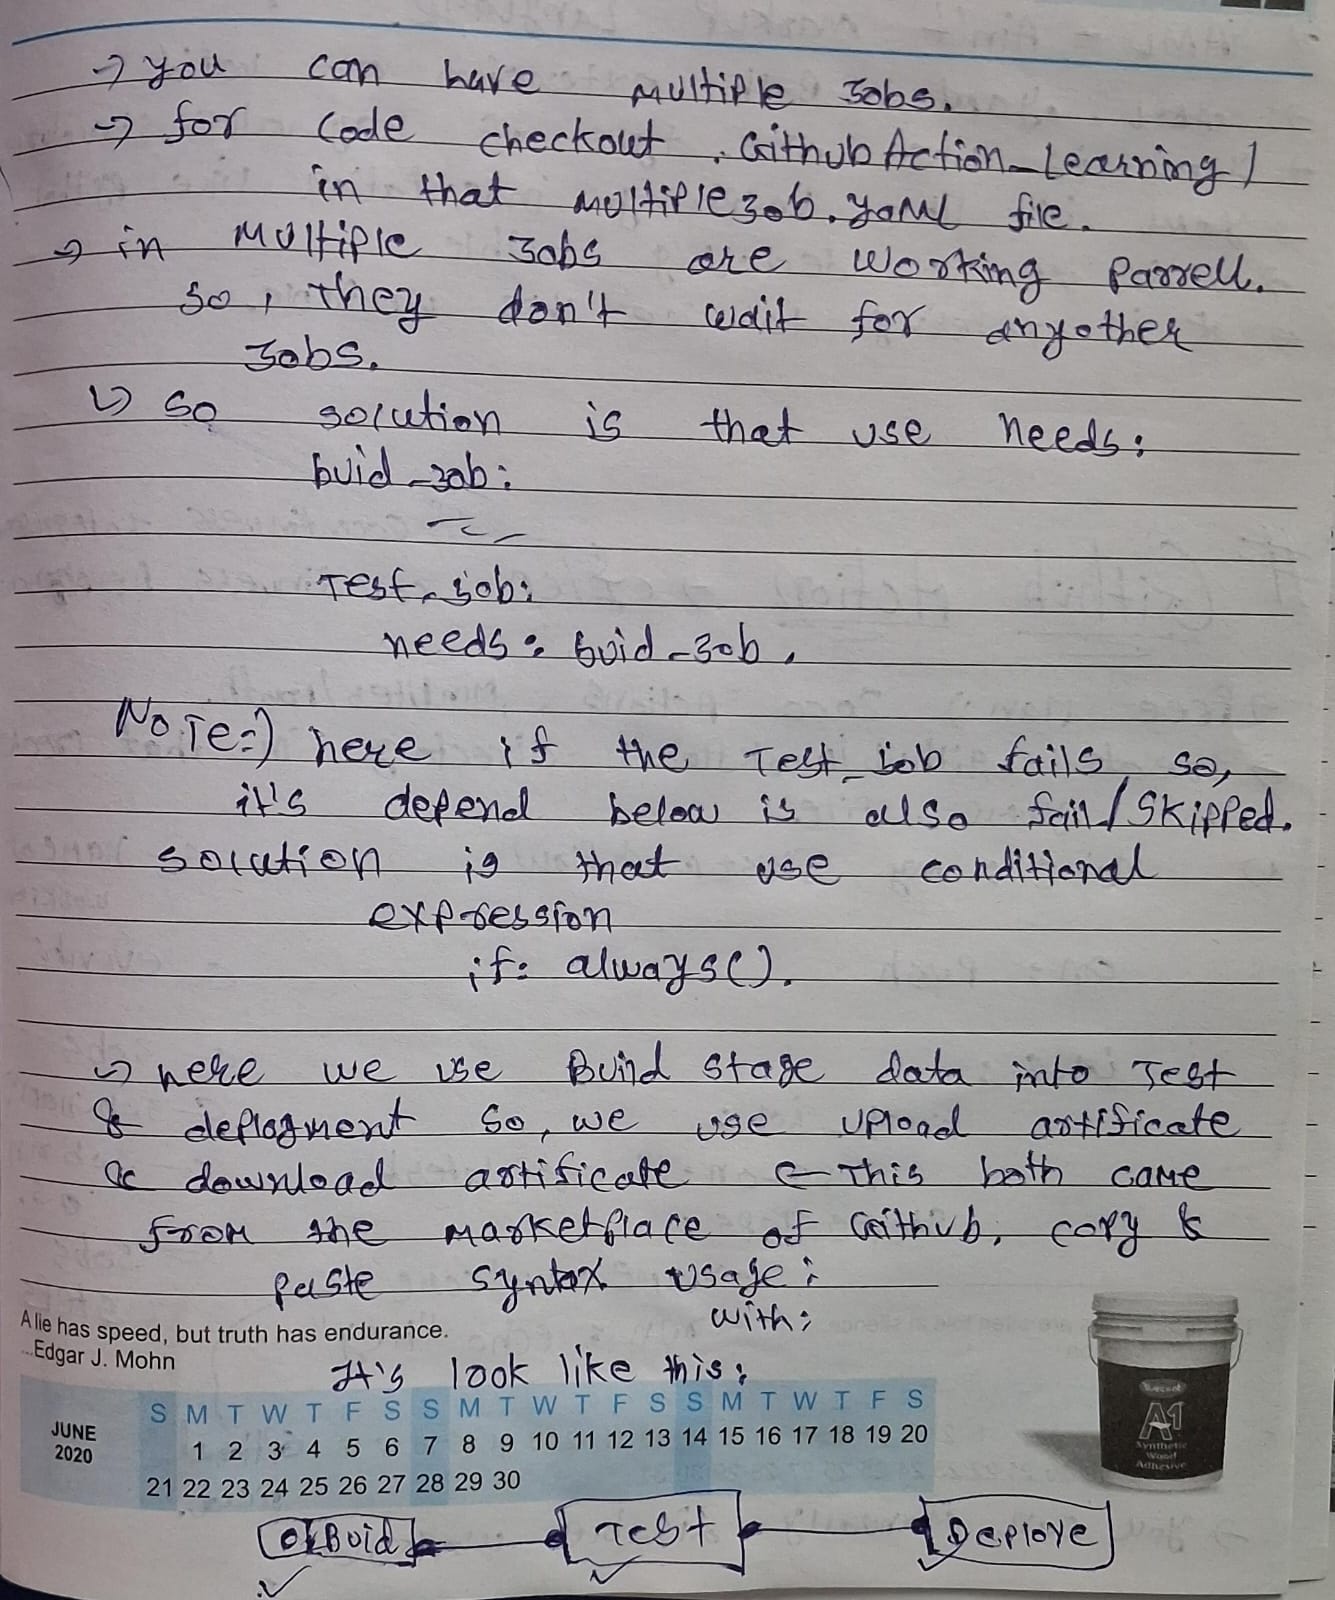 → you can have multiple Jobs.
→ for code checkout. GithubAction_Learning/
in that multipleJob.yaml file.
→ in multiple Jobs are working Parrell.
so, they don't wait for anyother
Jobs.
↳ so solution is that use needs:
buid_Job:
Test_job:
needs: buid_Job.
Note:) here if the Test_job fails so,
it's depend below is also fail/skipped.
solution is that use conditional
expression
if: always().
→ here we use Build stage data into Test
& deployment so, we use upload artificate
& download artificate ← This both came
from the marketplace of Github, copy &
paste syntax usage:
with:
A lie has speed, but truth has endurance.
...Edgar J. Mohn
It's look like this:
S M T W T F S S M T W T F S S M T W T F S
JUNE 2020
1 2 3 4 5 6 7 8 9 10 11 12 13 14 15 16 17 18 19 20
21 22 23 24 25 26 27 28 29 30
A1
Synthetic
Wood
Adhesive
Buid Test Deploye